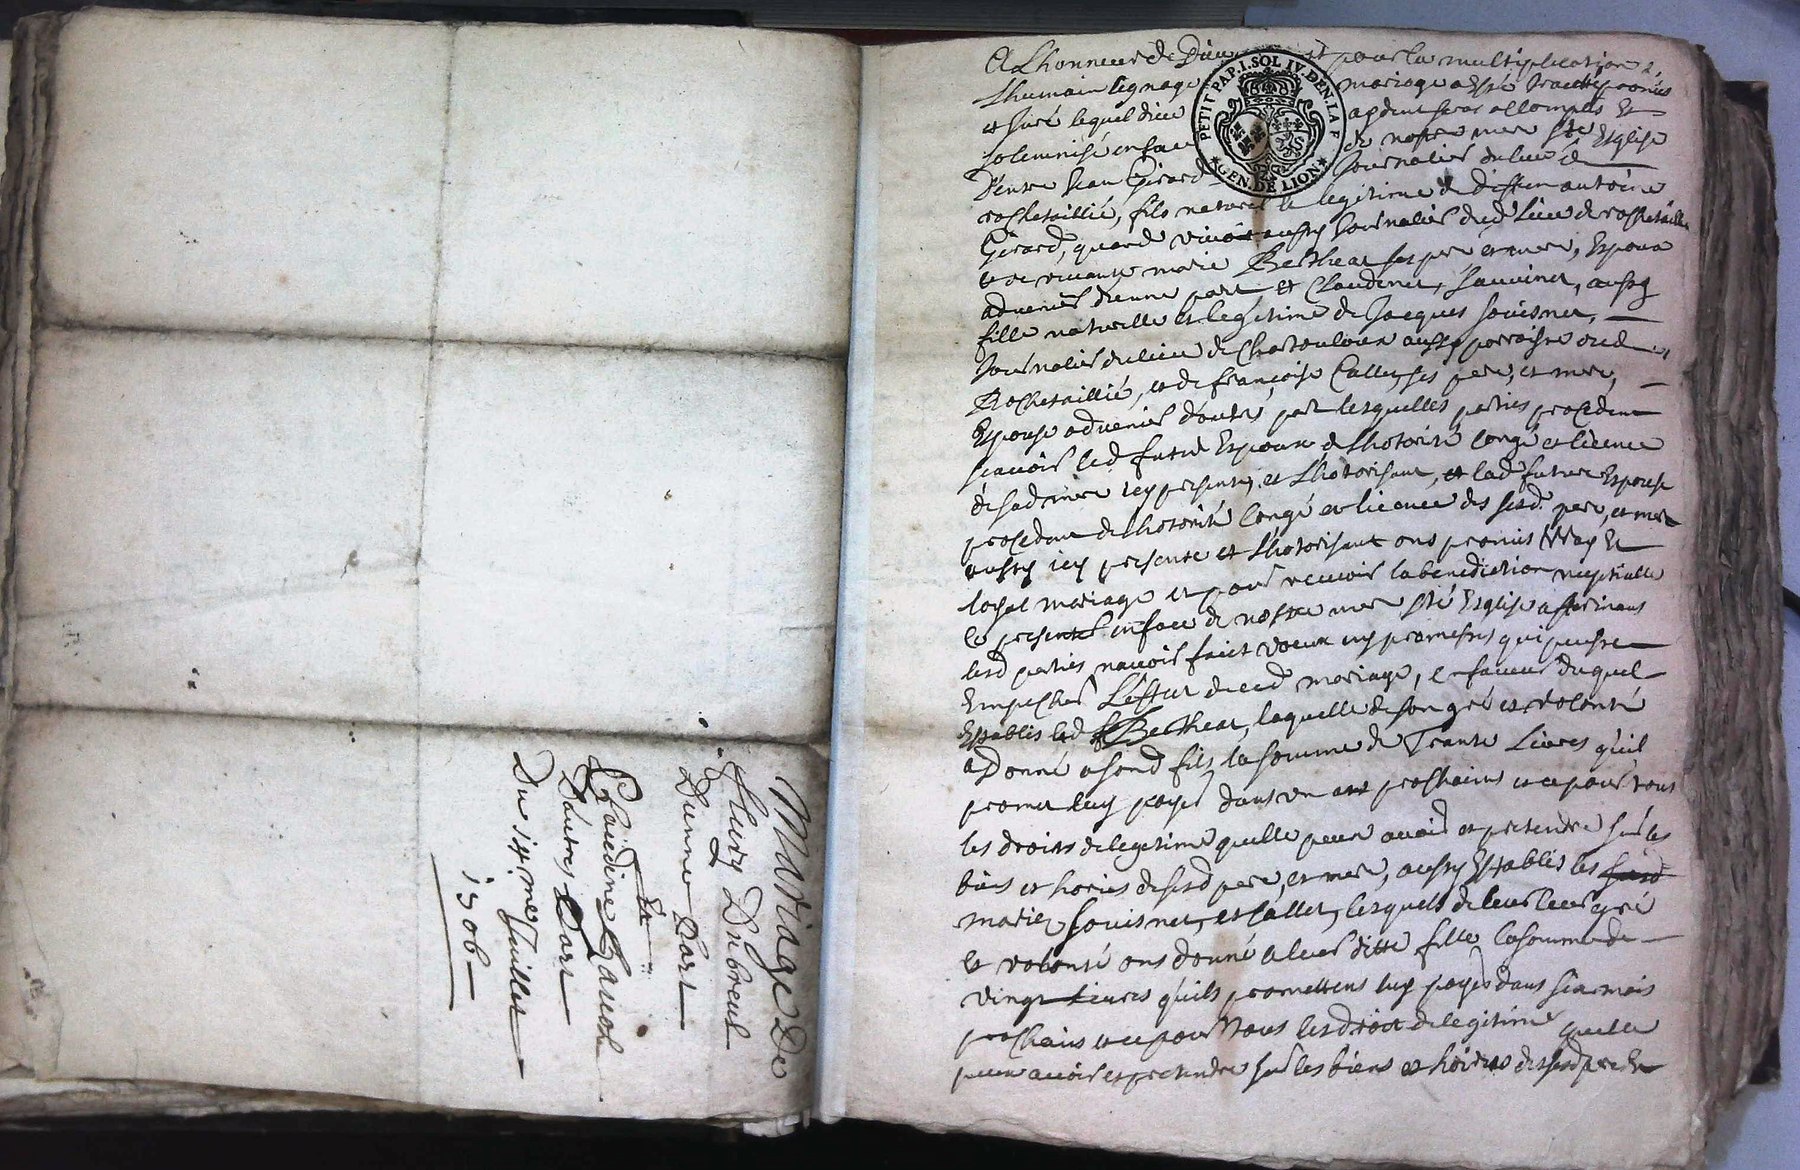 Mariage De
Fleury Dubreul
Dunne Part
Et
Claudine
Dautre Part
Du 14me Juillet
1706
A Lhonneur de Dieu et pour la multiplication de
Lhumain lignage mariage a esté traitté promis
et juré lequel dieu aydent sera accomply Et
solemnisé en face de nostre mere Ste Esglise
D'entre Jean Girard Journalier du lieu de
rochetaillié, fils naturel et legitime de deffunt antoine
Girard, quand vivoit aussy Journalier dud. Lieu de rochetaillié
et de vivante marie Bertheat ses pere et mere, Espoux
advenir d'eunne part Et Claudine Souvinet, aussy
fille naturelle et legitime de Jacques Souisnet,
Journalier du lieu de Chartouloux aussy parroisse dud.
Rochetaillié, et de françoise Callet, ses pere, et mere,
Espouse advenir d'autre part lesquelles parties procedent
scavoir led. futur Espoux de Lhotorité congé et licence
de sad. mere icy presente, et Lhotorisant, et lad. future Espouse
procedant de lhotorité Congé et licence des sesd. pere, et mere
aussy icy presents et Lhotorisant ont promis Vray Et
loyal mariage et pour recevoir la benediction nuptialle
se presenter en face de nostre mere Ste Esglise affirmans
lesd. parties n'avoir faict voeux ny promesses qui puissent
Empecher L'effect dud. mariage, En faveur duquel
Establie lad. Bertheat, laquelle de son gré et volonté
a Donné a sond. fils la somme de Trante Livres qu'il
promet luy payer dans un an prochains et ce pour tous
les droits de legitime qu'elle peut avoir et pretendre sur les
biens et hoiries de sesd. pere, et mere, aussy Establis les
mariez Souisnet, et Callet, lesquels de leur gré
et volonté ont donné a leur ditte fille la somme de
vingt Livres qu'ils promettent luy payer dans six mois
prochains et ce pour tous les droict de legitime quelle
peut avoir et pretendre sur les biens et hoiries de sesd. pere Et
PETIT PAP. I. SOL IV. DEN. LA F
GEN. DE LION